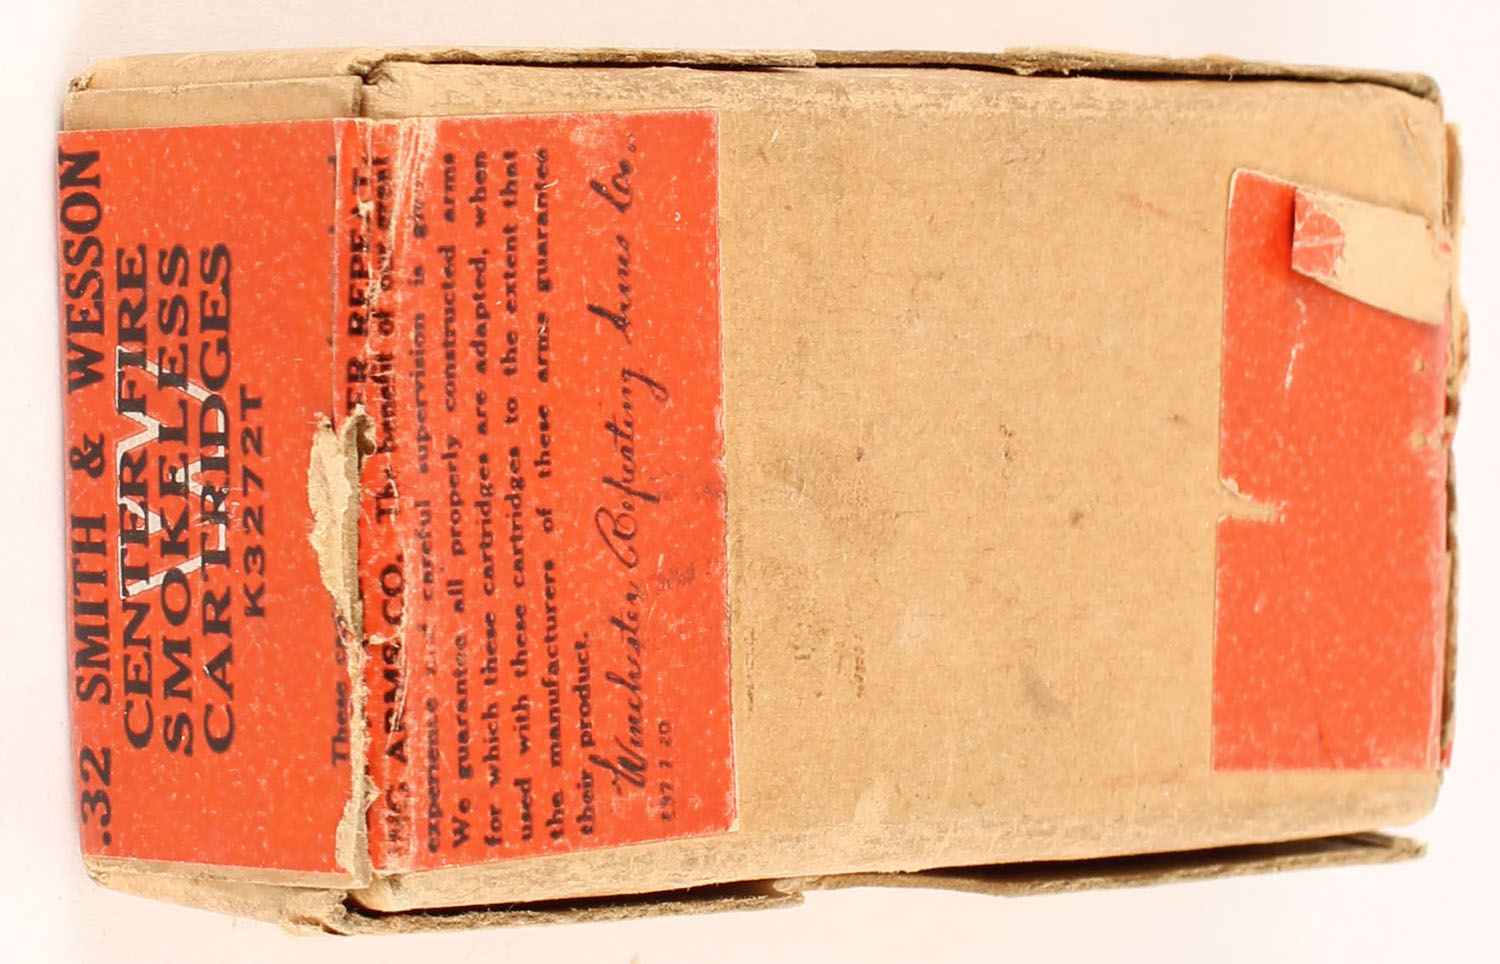 .32 SMITH & WESSON
CENTER FIRE
SMOKELESS
CARTRIDGES
W
K3272T
These
ER REPEAT-
ING ARMS CO. The benefit of our great
experience and careful supervision is
We guarantee all properly constructed arms
for which these cartridges are adapted, when
used with these cartridges to the extent that
the manufacturers of these arms guarantee
their product.
Winchester Repeating Arms Co.